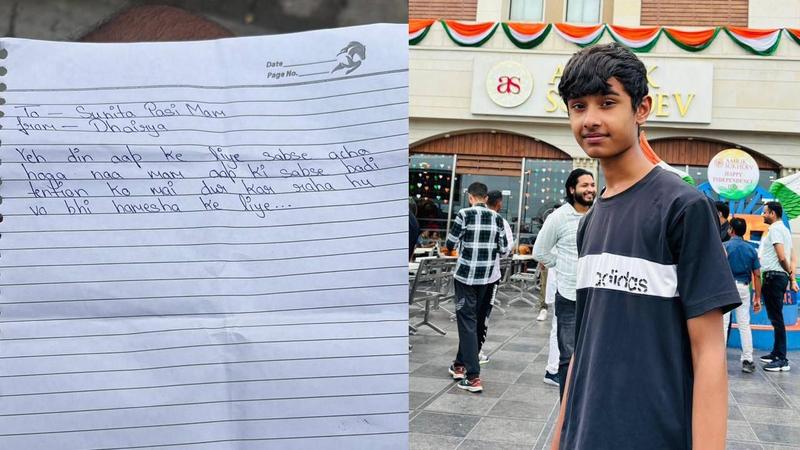 Date
Page No.
To — Sunita Pasi Mam
from — Dhairya
Yeh din aap ke liye sabse acha
hoga naa mam aap ki sabse badi
tention ko mai dur kar raha hu
va bhi hamesha ke liye...
as
adidas
AMRIK
SUKHDEV
HAPPY